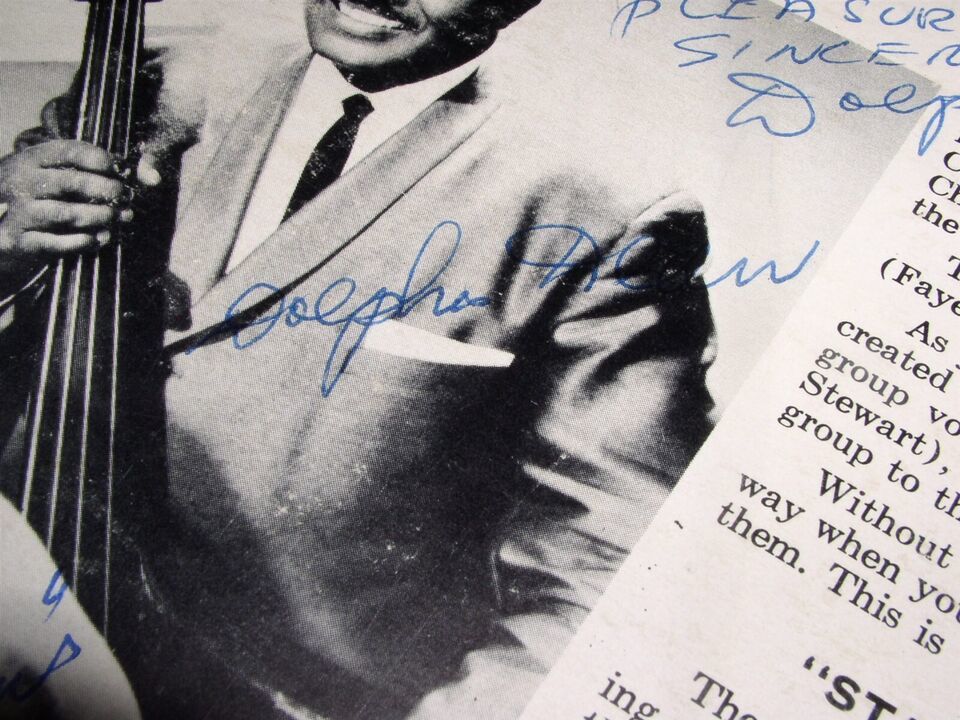 PLEASUR
SINCER
Dolp
Dolphas
Ch
the
(Faye
As
created
group vo
Stewart),
group to th
Without
way when you
them. This is
"ST
The
ing